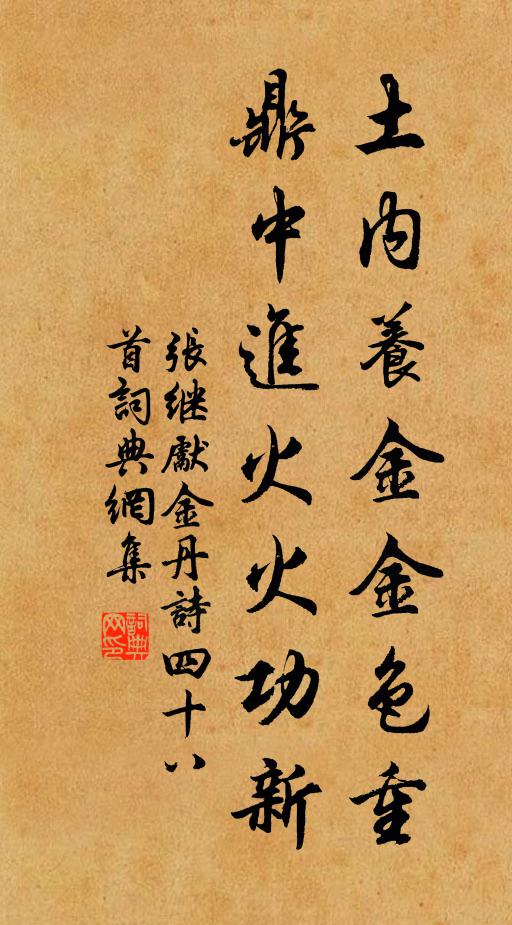 土内養金金色重
鼎中進火火功新
張継獻金丹詩四十八
首詞典網集
詞典
网印